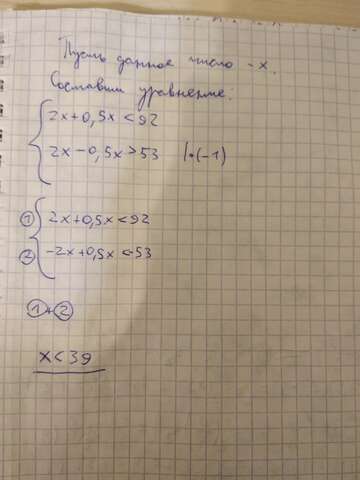 Пусть данное число - x.
Составим уравнение:
2x+0,5x<92
2x-0,5x>53 |•(-1)
① 2x+0,5x<92
② -2x+0,5x<-53
①+②
x<39